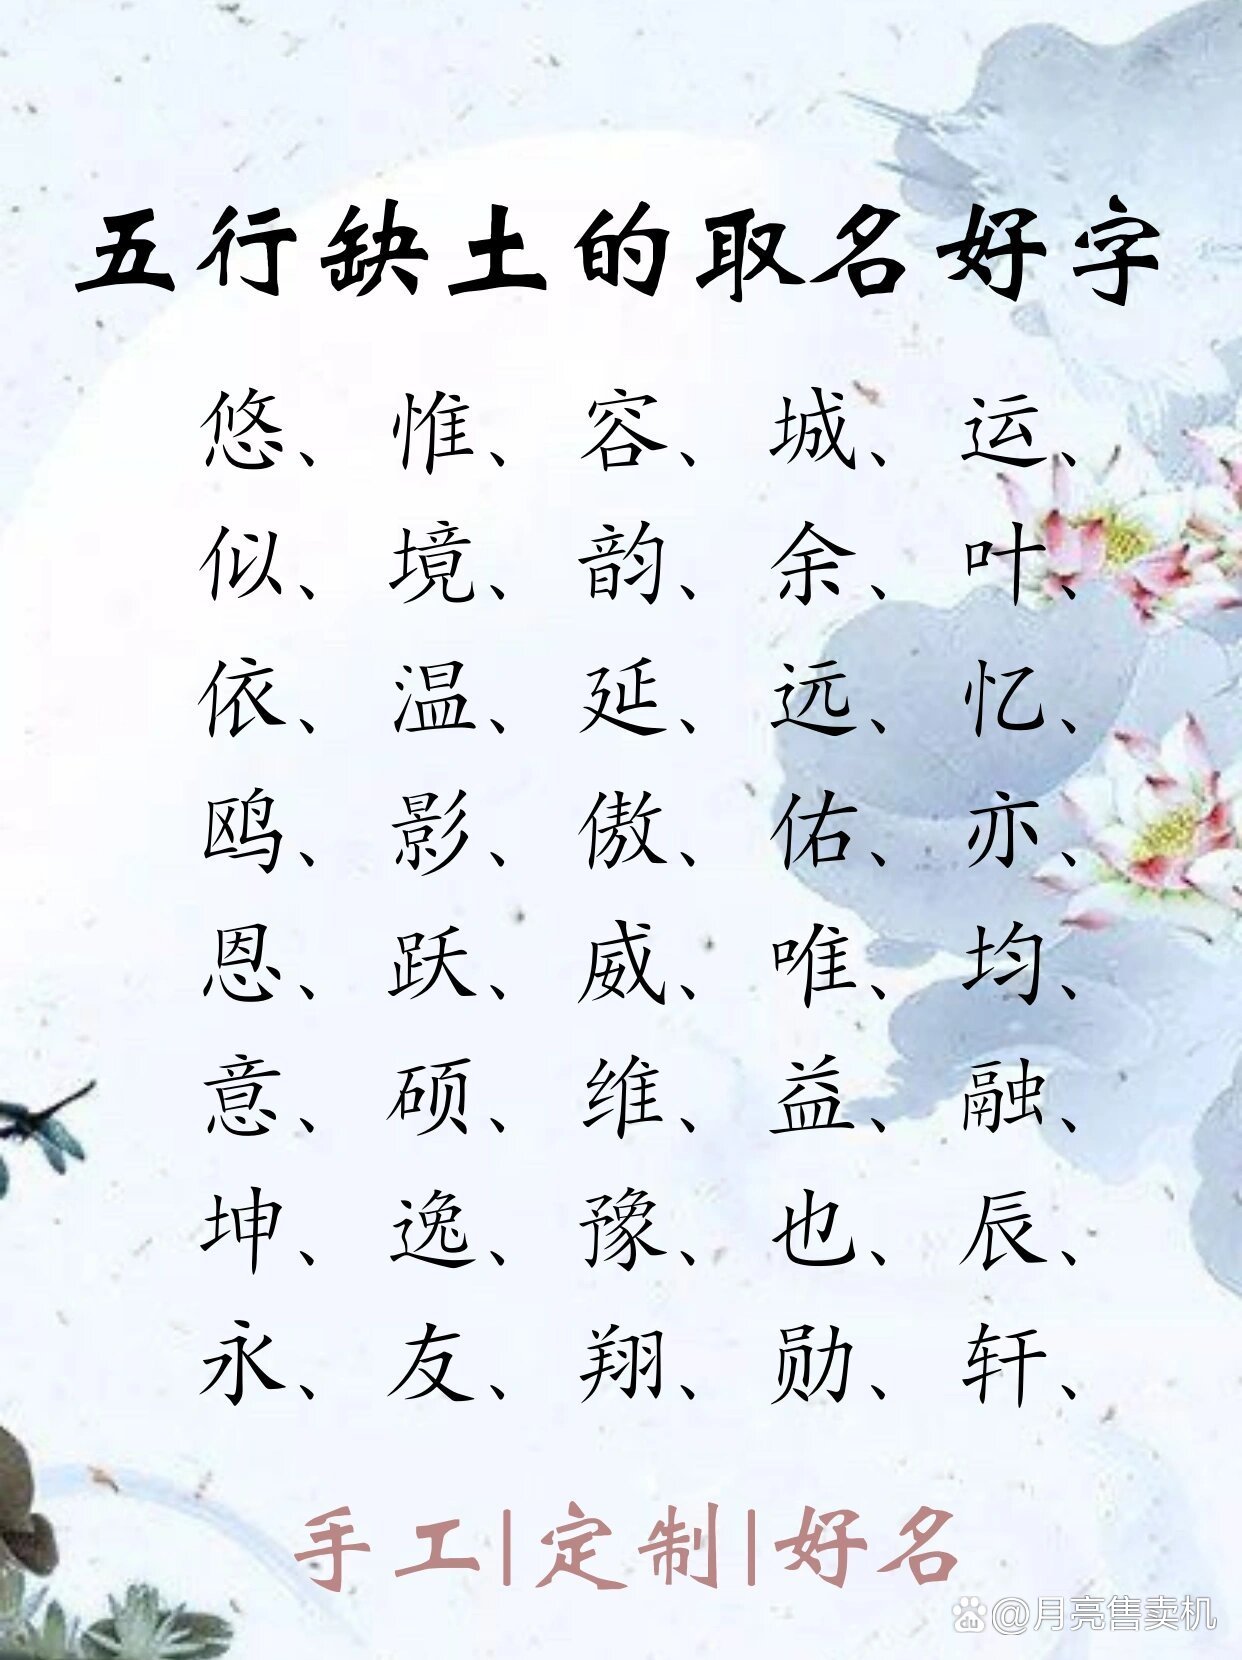 五行缺土的取名好字
悠、惟、容、城、运、
似、境、韵、余、叶、
依、温、延、远、忆、
鸥、影、傲、佑、亦、
恩、跃、威、唯、均、
意、硕、维、益、融、
坤、逸、豫、也、辰、
永、友、翔、勋、轩、
手工|定制|好名
@月亮售卖机